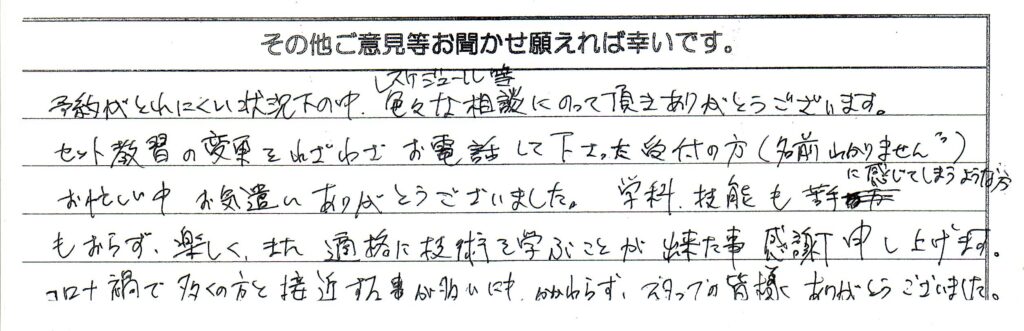 その他ご意見等お聞かせ願えれば幸いです。
スケジュール等
予約がとれにくい状況下の中、色々な相談にのって頂きありがとうございます。
セット教習の変更をわざわざお電話して下さった受付の方(名前わかりません
に感じてしまうような方
お忙しい中 お気遣いありがとうございました。 学科、技能も苦手
もおらず、楽しく、また 適格に技術を学ぶことが出来た事 感謝申し上げます。
コロナ禍で多くの方と接近する事が多いに中、かかわらず、スタッフの皆様にありがとうございました。